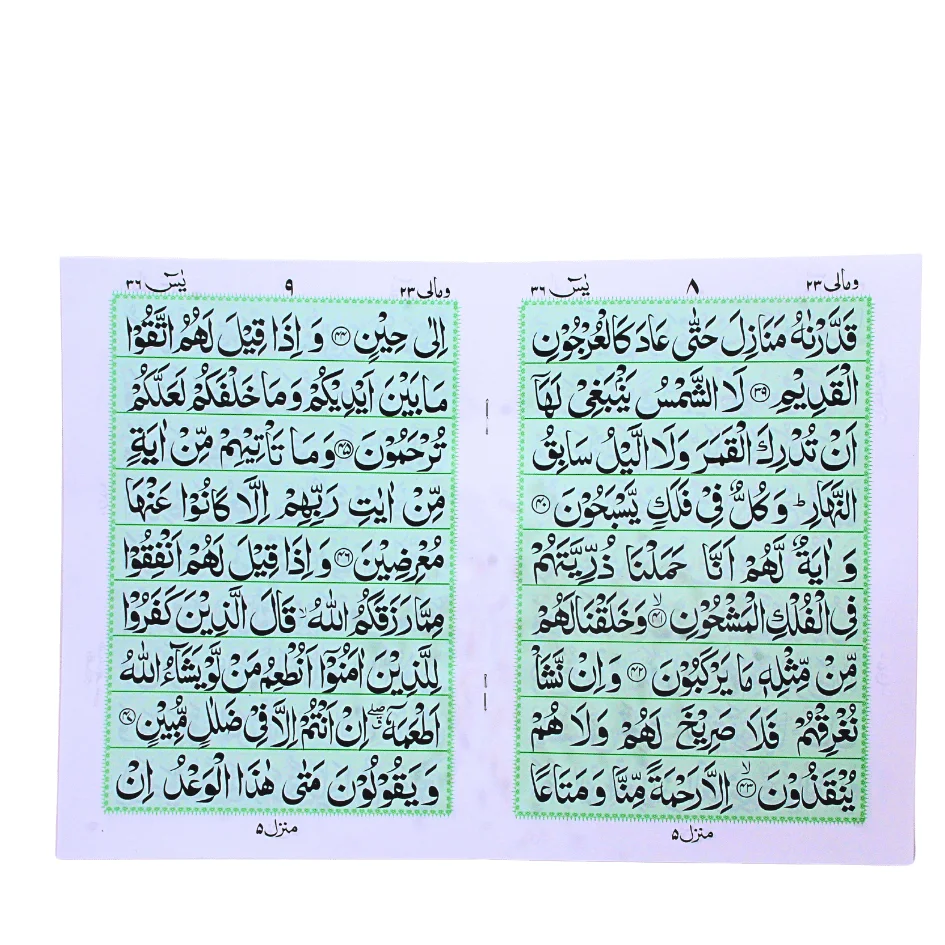 ومالی ۲۳ ۸ یٰسٓ ۳۶
قَدَّرْنٰهُ مَنَازِلَ حَتّٰى عَادَ كَالْعُرْجُوْنِ
الْقَدِيْمِ ۝۳۹ لَا الشَّمْسُ يَنْۢبَغِيْ لَهَاۤ
اَنْ تُدْرِكَ الْقَمَرَ وَلَا الَّيْلُ سَابِقُ
النَّهَارِ ؕ وَكُلٌّ فِيْ فَلَكٍ يَّسْبَحُوْنَ ۝۴۰
وَ اٰيَةٌ لَّهُمْ اَنَّا حَمَلْنَا ذُرِّيَّتَهُمْ
فِي الْفُلْكِ الْمَشْحُوْنِ ۝۴۱ۙ وَخَلَقْنَا لَهُمْ
مِّنْ مِّثْلِهٖ مَا يَرْكَبُوْنَ ۝۴۲ وَ اِنْ نَّشَاْ
نُغْرِقْهُمْ فَلَا صَرِيْخَ لَهُمْ وَ لَا هُمْ
يُنْقَذُوْنَ ۝۴۳ۙ اِلَّا رَحْمَةً مِّنَّا وَ مَتَاعًا
منزل ۵
ومالی ۲۳ ۹ یٰسٓ ۳۶
اِلٰى حِيْنٍ ۝۴۴ وَ اِذَا قِيْلَ لَهُمُ اتَّقُوْا
مَا بَيْنَ اَيْدِيْكُمْ وَ مَا خَلْفَكُمْ لَعَلَّكُمْ
تُرْحَمُوْنَ ۝۴۵ وَ مَا تَاْتِيْهِمْ مِّنْ اٰيَةٍ
مِّنْ اٰيٰتِ رَبِّهِمْ اِلَّا كَانُوْا عَنْهَا
مُعْرِضِيْنَ ۝۴۶ وَ اِذَا قِيْلَ لَهُمْ اَنْفِقُوْا
مِمَّا رَزَقَكُمُ اللّٰهُ ۙ قَالَ الَّذِيْنَ كَفَرُوْا
لِلَّذِيْنَ اٰمَنُوْۤا اَنُطْعِمُ مَنْ لَّوْ يَشَآءُ اللّٰهُ
اَطْعَمَهٗۤ ۖ اِنْ اَنْتُمْ اِلَّا فِيْ ضَلٰلٍ مُّبِيْنٍ ۝۴۷
وَ يَقُوْلُوْنَ مَتٰى هٰذَا الْوَعْدُ اِنْ
منزل ۵